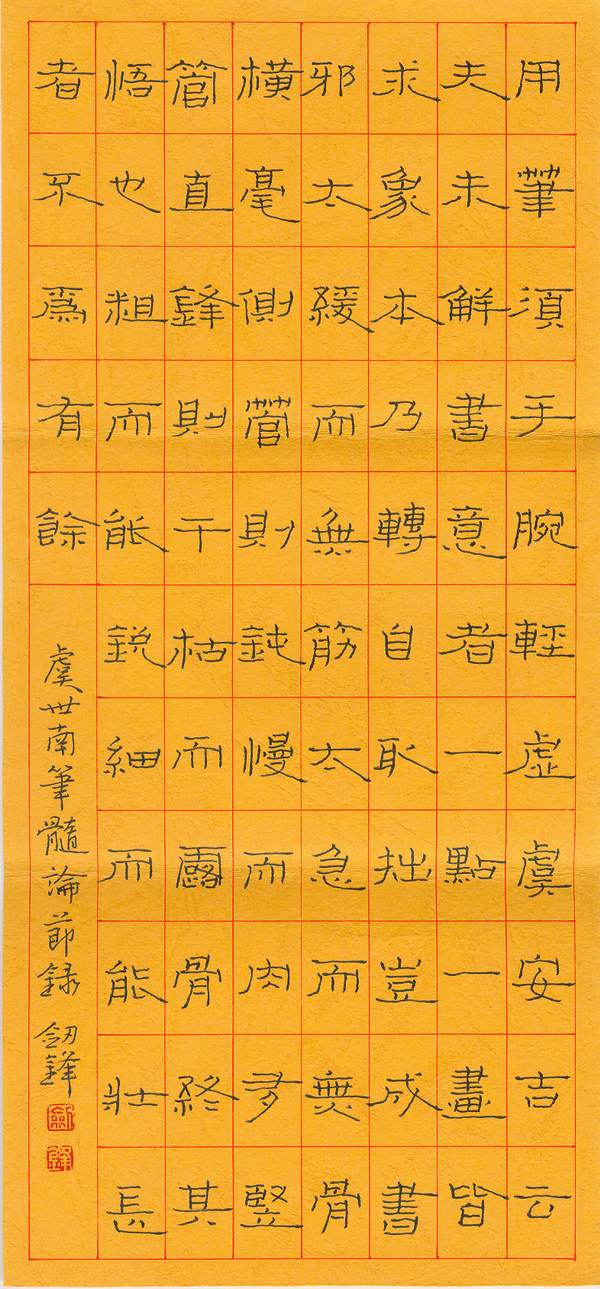 用筆須手腕輕虛虞安吉云
夫未解書意者一點一畫皆
求象本乃轉自取拙豈成書
邪太緩而無筋太急而無骨
橫毫側管則鈍慢而肉多豎
管直鋒則干枯而露骨終其
悟也粗而能鋭細而能壯長
者不爲有餘
虞世南筆髓論節録 劍鋒
劍
鋒